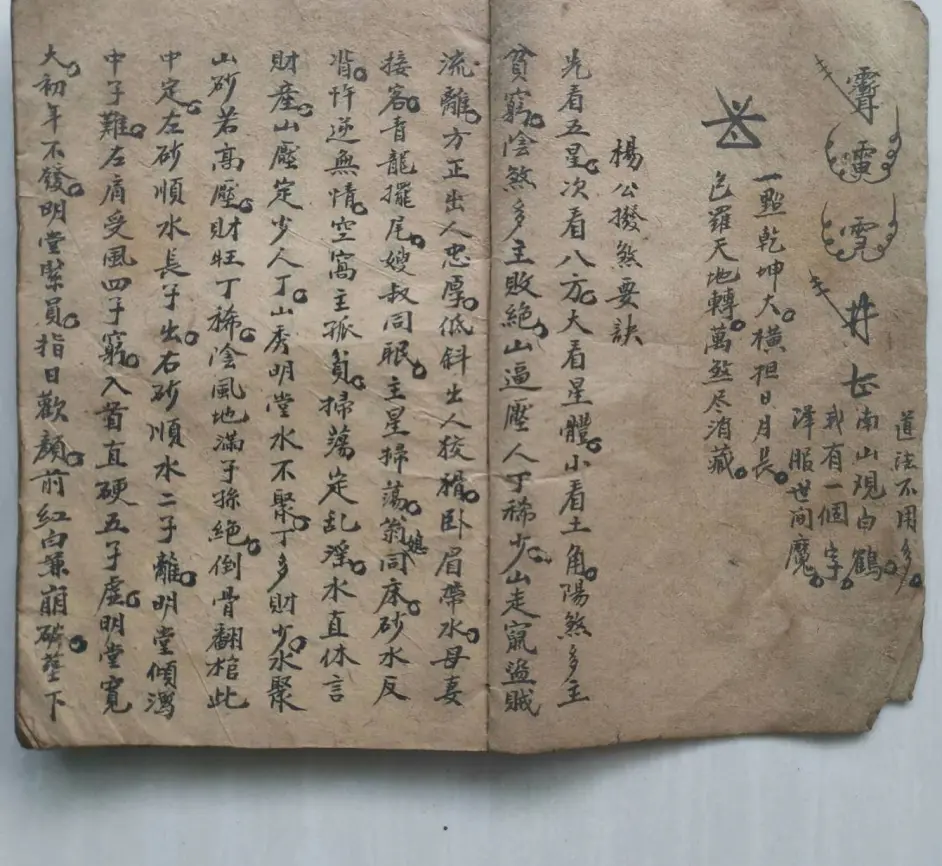 道法不用多
南山观白鶴
我有一個字
降服世间魔
井
一點乾坤大横担日月長
包羅天地轉萬煞尽消藏
楊公撥煞要訣
先看五星次看八方大看星體小看土角陽煞多主
貧窮陰煞多主敗絕山逼壓人丁稀少山走竄盗賊
流離方正出人忠厚低斜出人狡猾卧眉帶水母妻
接客青龍擺尾嫂叔同眠主星掃蕩翁媳同床砂水反
背忤逆無情空窩主孤貧掃蕩定乱淫水直休言
財產山壓定少人丁山秀明堂水不聚丁多財少水聚
山砂若高壓財旺丁稀陰風地滿子孫絕倒骨翻棺此
中定左砂順水長子出右砂順水二子離明堂傾瀉
中子難左肩受風四子窮入首直硬五子虛明堂寬
大初年不發明堂緊員指日歡顏前紅白兼崩破塋下